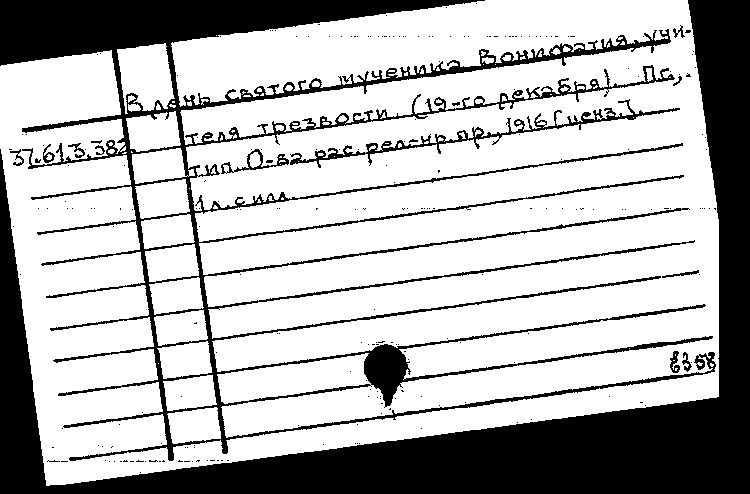 В день святого мученика Вонифатия, учи-
теля трезвости. (19-го декабря). Пг.,
37.61.3.382 тип. О-ва рас. рел-нр. пр., 1916 [ценз.].
1 л. с илл.
6358